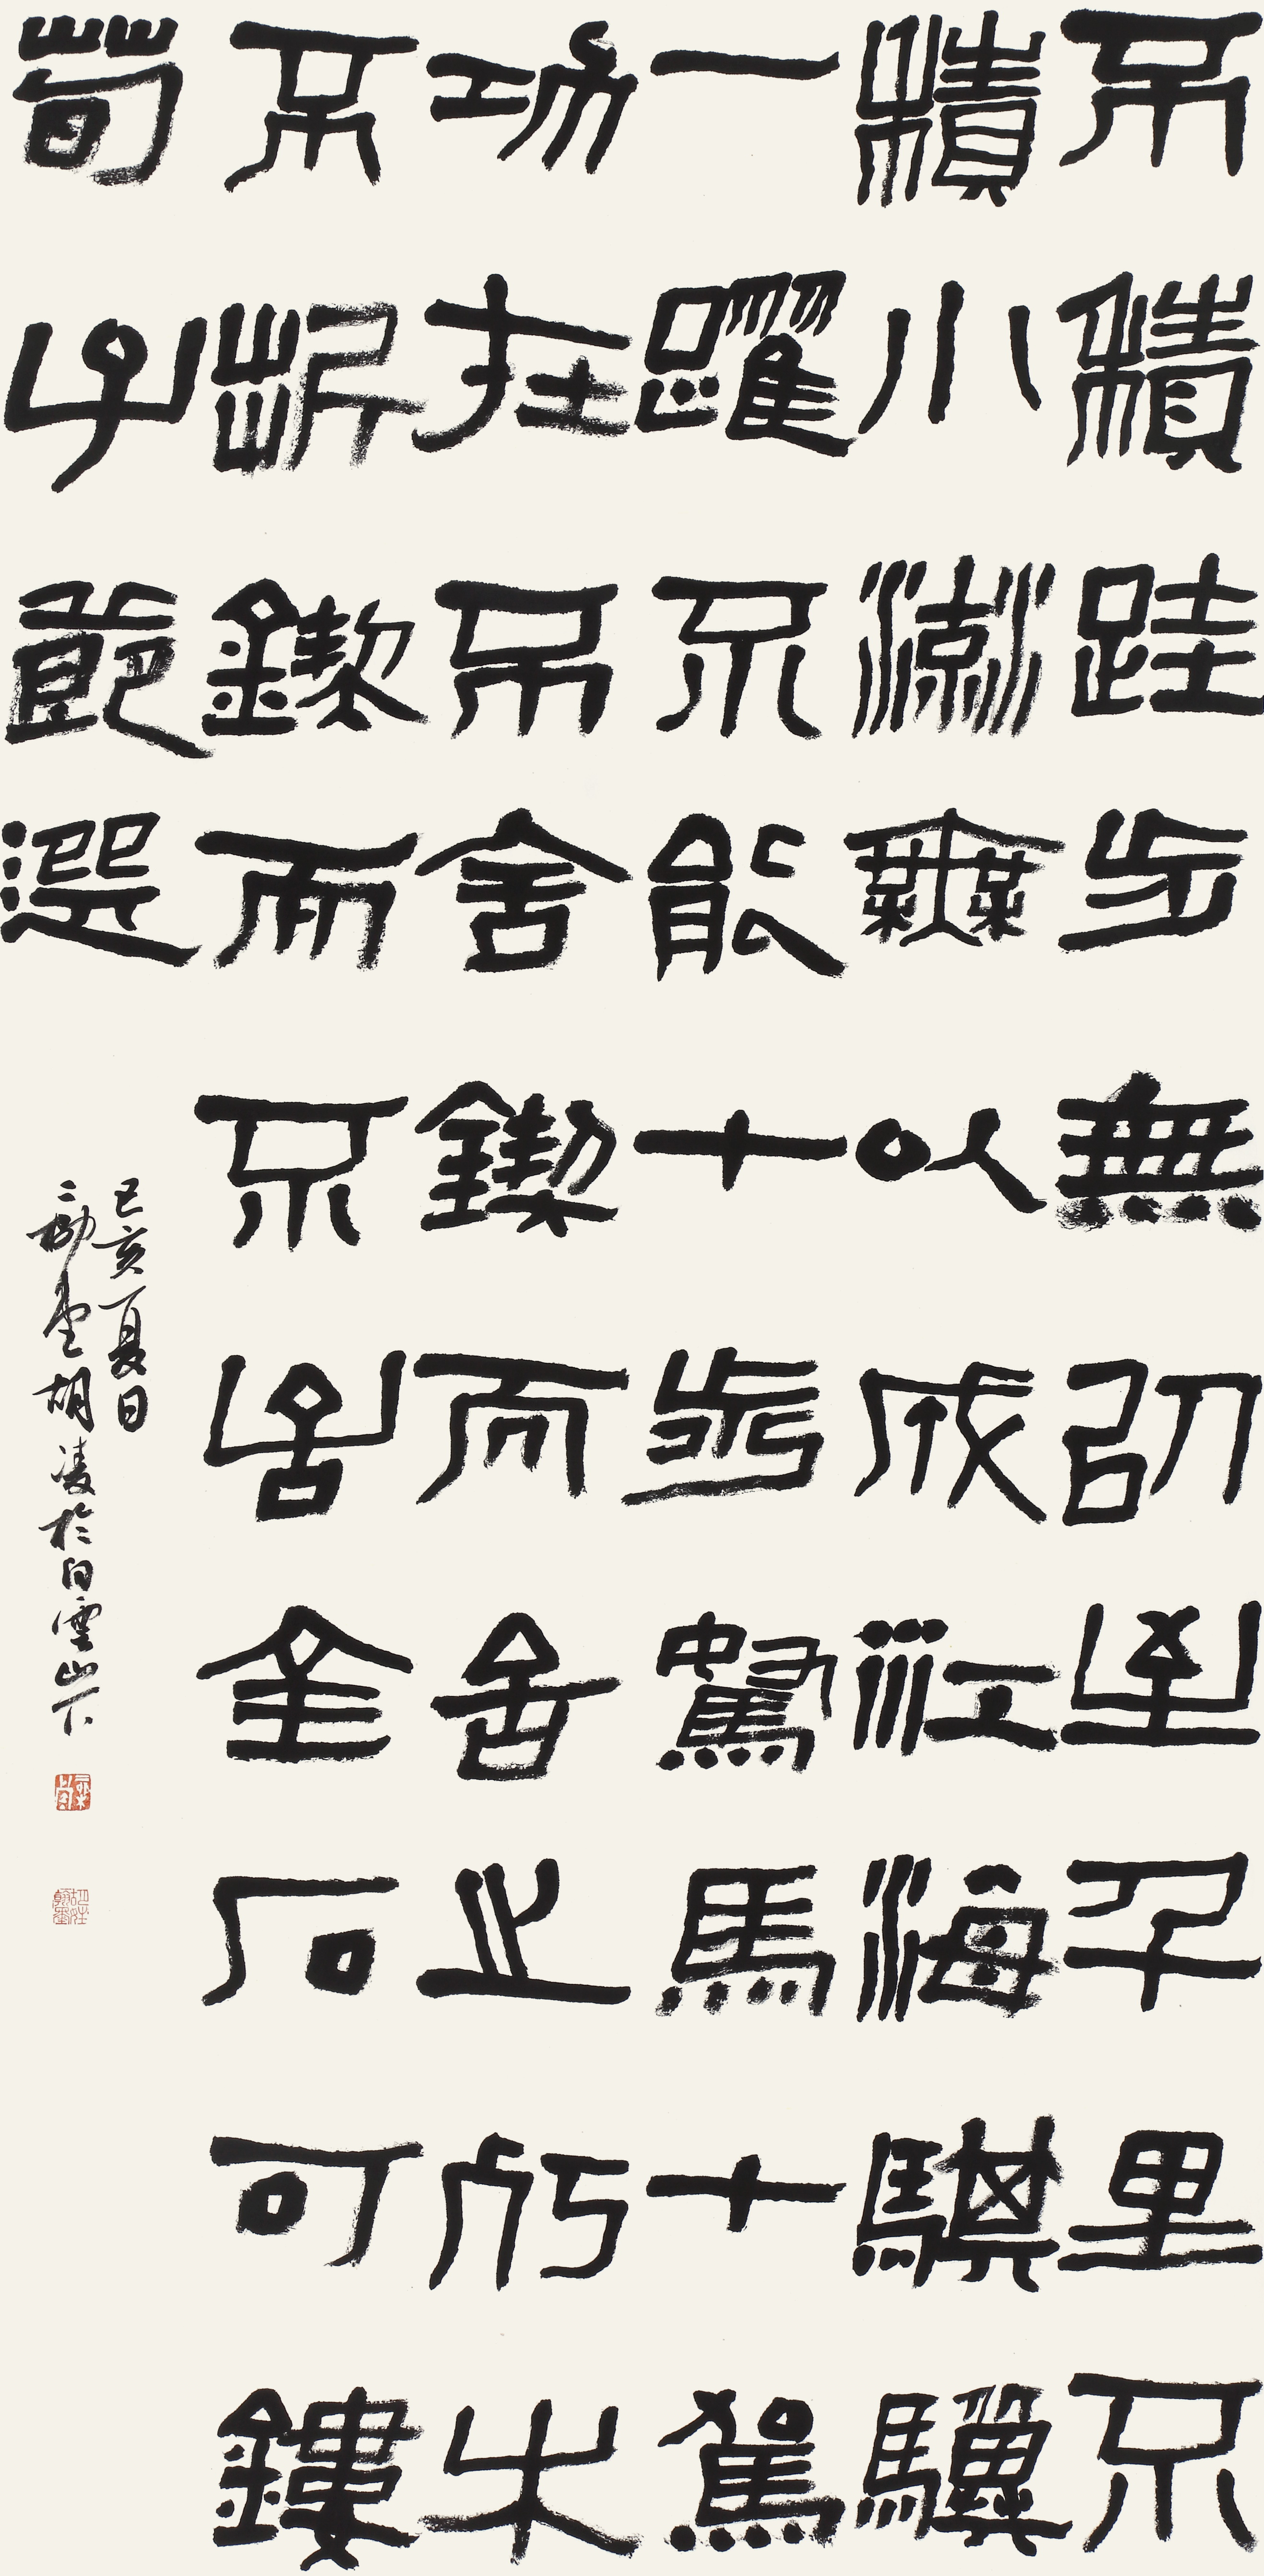 不積跬步無以至千里不
積小流無以成江海騏驥
一躍不能十步駑馬十駕
功在不舍鍥而舍之朽木
不折鍥而不舍金石可鏤
荀子節選
己亥夏日
堂胡凌於白雲山下